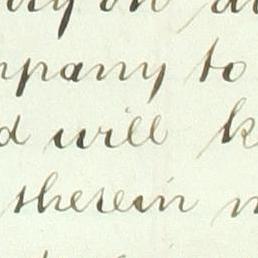 on
mpany to
d will k
therein